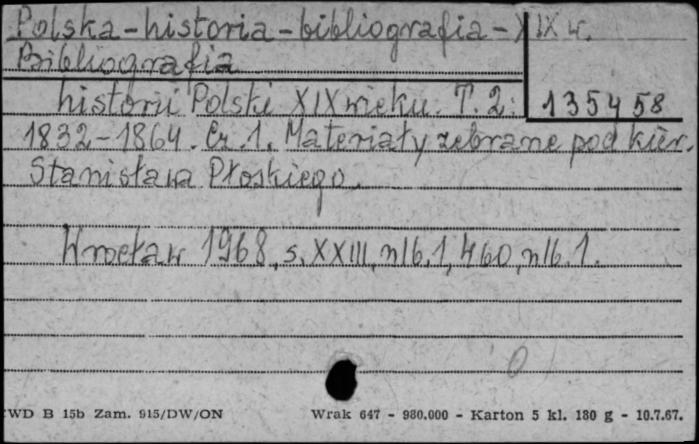 Polska-historia-bibliografia-XIX w.
Bibliografia
historii Polski XIX wieku. T. 2:
135458
1832-1864. Cz. 1. Materiały zebrane pod kier.
Stanisława Płoskiego.
Wrocław 1968, s. XXIII, nlb. 1, 460, nlb. 1.
0
WD B 15b Zam. 915/DW/ON
Wrak 647 - 980.000 - Karton 5 kl. 180 g - 10.7.67.